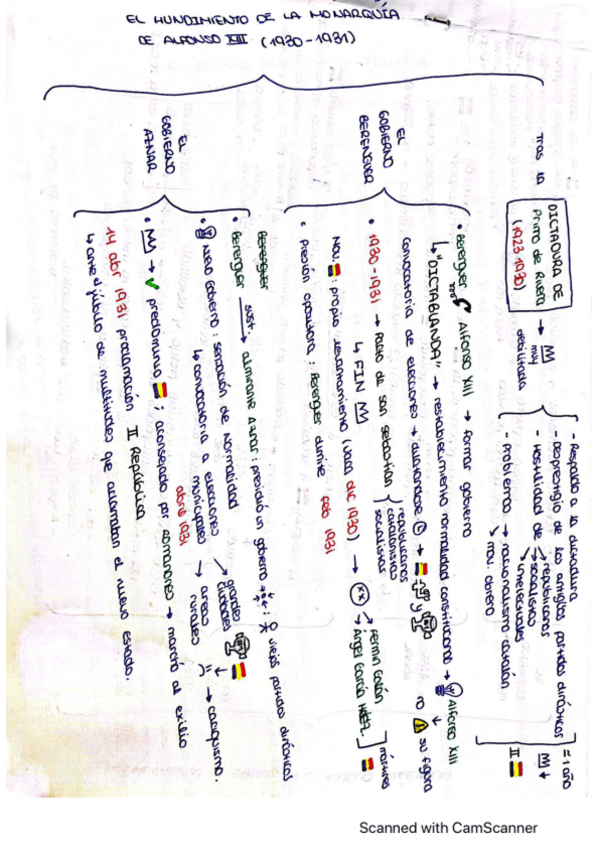 EL HUNDIMIENTO DE LA MONARQUÍA
DE ALFONSO XIII (1930-1931)
Tras la
DICTADURA DE
Primo de Rivera
(1923-1930)
→ M
muy
debilitada
- Respaldo a la dictadura
- Desprestigio de los antiguos partidos dinásticos
- Hostilidad de
republicanos
socialistas
intelectuales
- Problemas → nacionalismo catalán
mov. obrero
= 1 año
M ↓
II
EL
GOBIERNO
BERENGUER
• Berenguer Alfonso XIII → formar gobierno
↳ "DICTABLANDA" → restablecimiento normalidad constitucional → Alfonso XIII
convocatoria de elecciones → y su figura
• 1930-1931 → Pacto de San Sebastián
republicanos
catalanistas
socialistas
↳ FIN M
Nov. : propio levantamiento (Jaca dic 1930) →
Fermín Galán
Ángel García Hdez.
mártires
• Presión opositora: Berenguer dimite feb 1931
EL
GOBIERNO
AZNAR
Berenguer
• Berenguer sust. → almirante Aznar: presidió un gobierno → : viejos partidos dinásticos
• Nuevo Gobierno: sensación de normalidad
↳ convocatoria a elecciones
municipales
abril 1931
grandes
ciudades
→ áreas
rurales
→ caciquismo.
• M → predominio ; aconsejado por Romanones → marcha al exilio
14 abr 1931 proclamación II República
↳ ante el júbilo de multitudes que aclamaban el nuevo estado.
Scanned with CamScanner